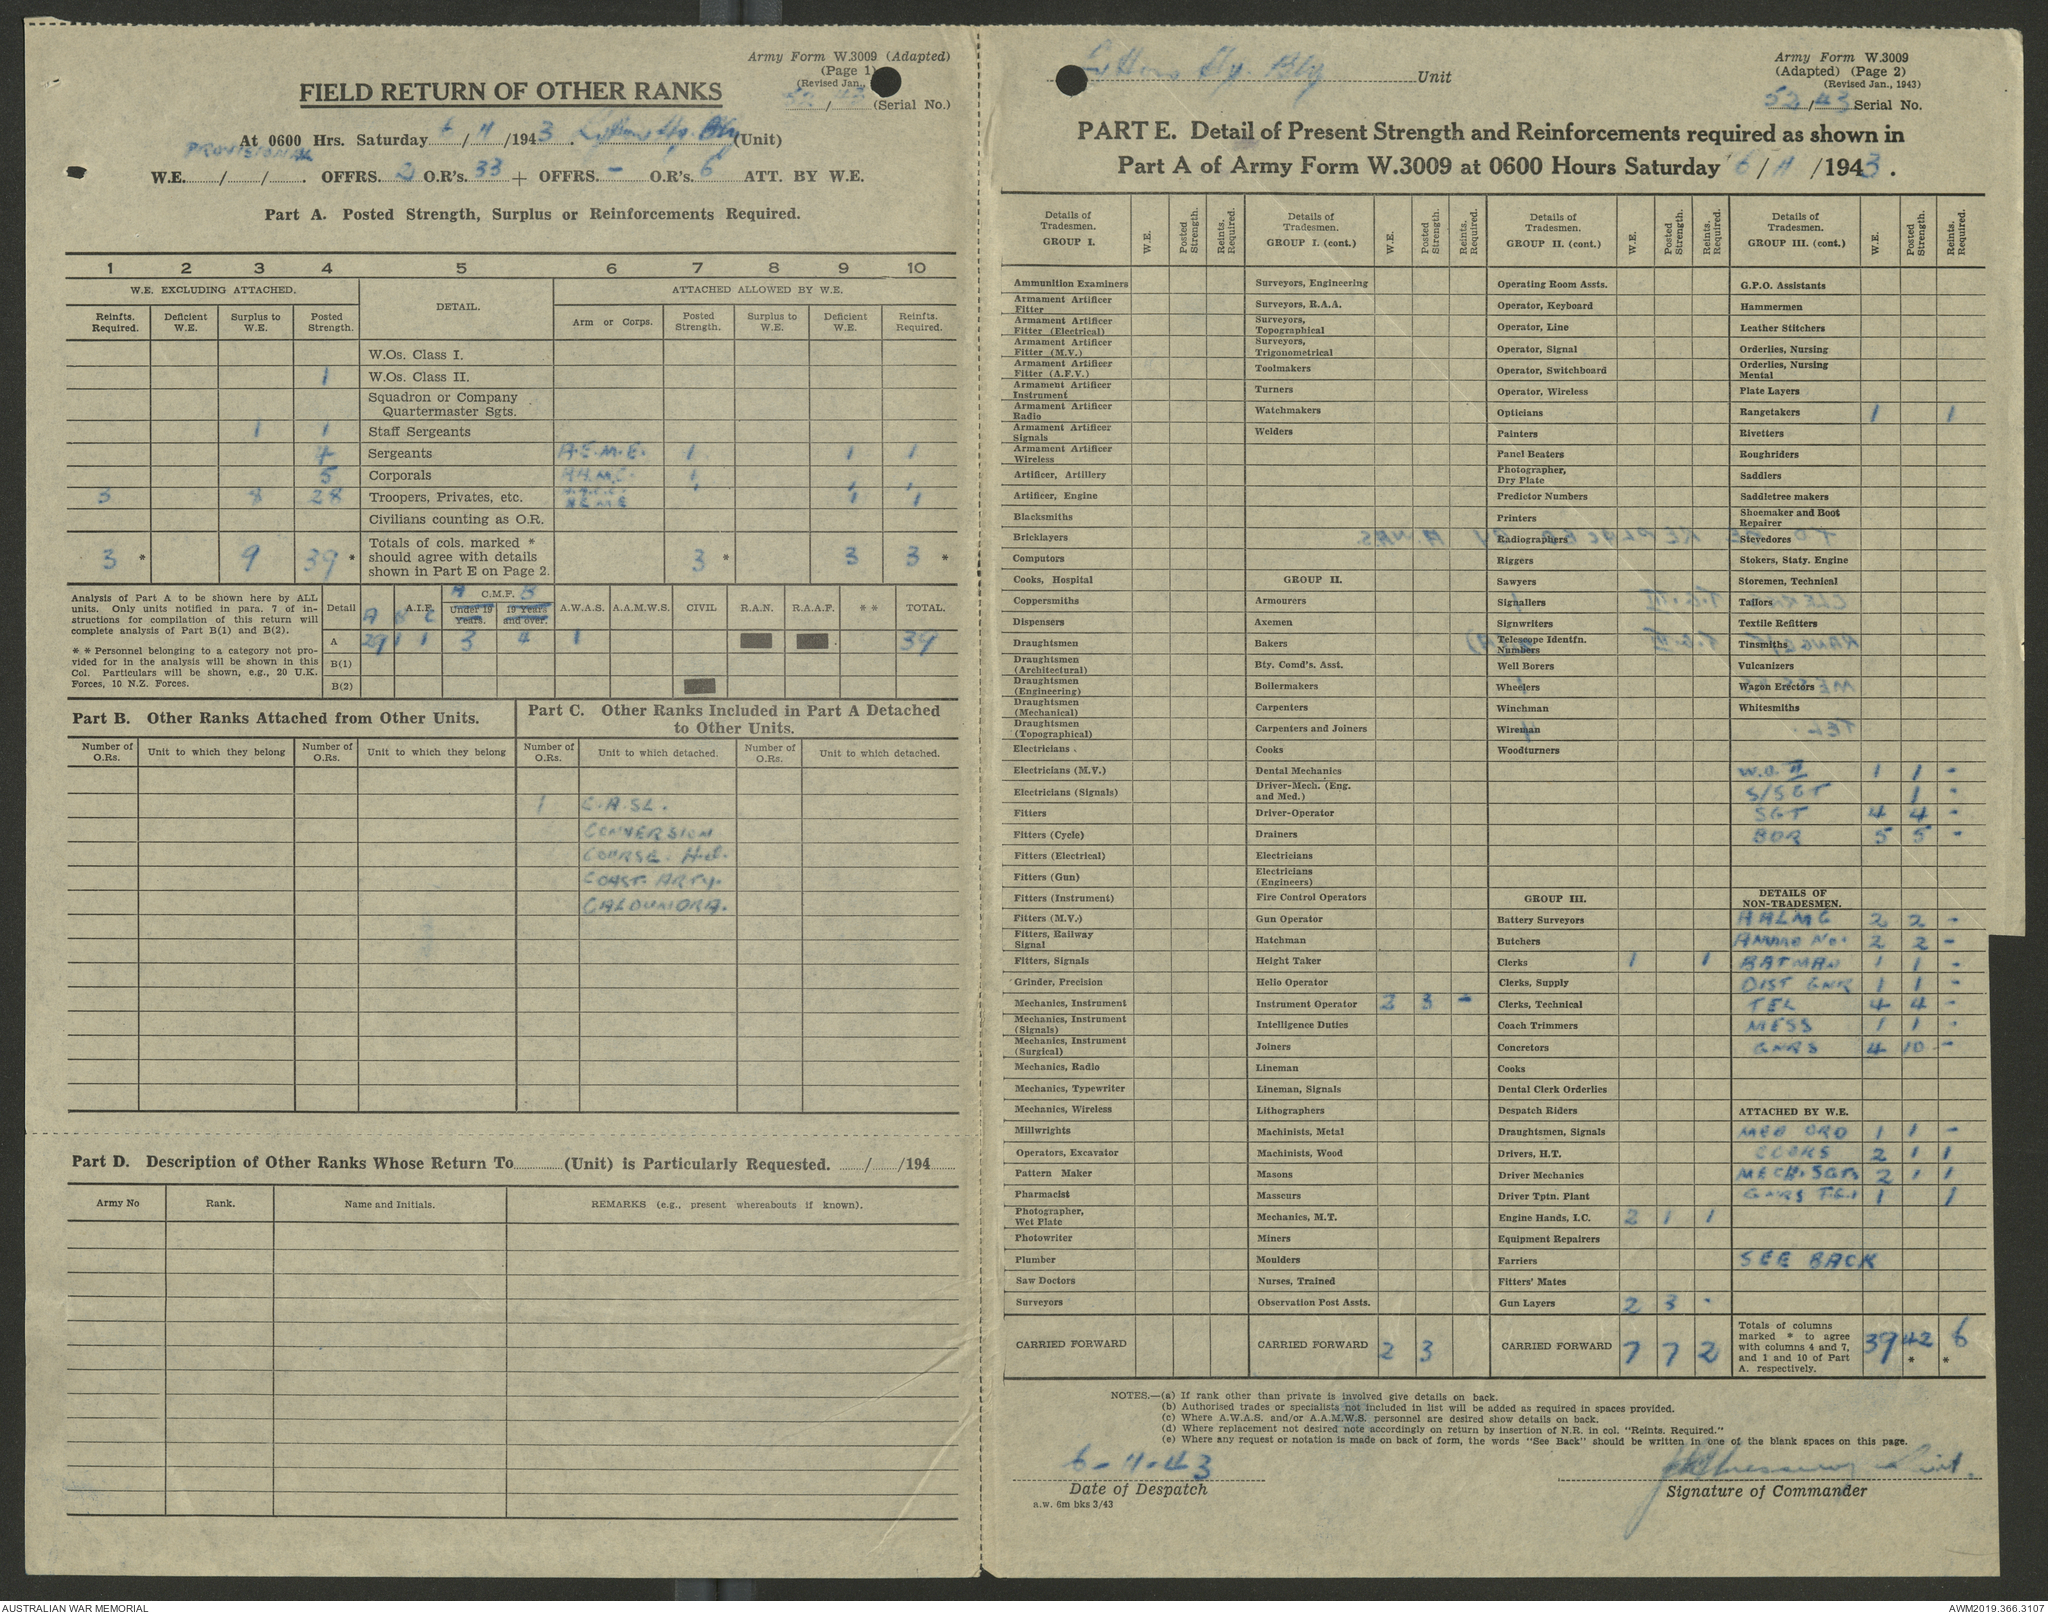 Army Form W.3009 (Adapted)
(Page 1)
(Revised Jan.,
52/43 (Serial No.)
FIELD RETURN OF OTHER RANKS
At 0600 Hrs. Saturday 6/11/1943. Hy. Bty (Unit)
PROVISIONAL
W.E. / / . OFFRS. 2 O.R's. 33 + OFFRS. - O.R's. 6 ATT. BY W.E.
Part A. Posted Strength, Surplus or Reinforcements Required.
1 2 3 4 5 6 7 8 9 10
W.E. EXCLUDING ATTACHED. DETAIL. ATTACHED ALLOWED BY W.E.
Reinfts. Required. Deficient W.E. Surplus to W.E. Posted Strength. Arm or Corps. Posted Strength. Surplus to W.E. Deficient W.E. Reinfts. Required.
W.Os. Class I.
1 W.Os. Class II.
Squadron or Company Quartermaster Sgts.
1 1 Staff Sergeants
4 Sergeants A.E.M.E. 1 1 1
5 Corporals A.A.M.C. 1
3 8 28 Troopers, Privates, etc. 1 1
Civilians counting as O.R.
3 * 9 39 * Totals of cols. marked * should agree with details shown in Part E on Page 2. 3 * 3 3 *
Analysis of Part A to be shown here by ALL units. Only units notified in para. 7 of instructions for compilation of this return will complete analysis of Part B(1) and B(2).
* * Personnel belonging to a category not provided for in the analysis will be shown in this Col. Particulars will be shown, e.g., 20 U.K. Forces, 10 N.Z. Forces.
Detail A.I.F. A B C C.M.F. A B Under 19 Years. 19 Years and over. A.W.A.S. A.A.M.W.S. CIVIL R.A.N. R.A.A.F. * * TOTAL.
A 29 1 1 3 4 1 39
B(1)
B(2)
Part B. Other Ranks Attached from Other Units.
Number of O.Rs. Unit to which they belong Number of O.Rs. Unit to which they belong
Part C. Other Ranks Included in Part A Detached to Other Units.
Number of O.Rs. Unit to which detached. Number of O.Rs. Unit to which detached.
1 C.A.SL.
CONVERSION
COURSE. H.Q.
COAST ARTY.
CALOUNDRA.
Part D. Description of Other Ranks Whose Return To (Unit) is Particularly Requested. / /194
Army No Rank. Name and Initials. REMARKS (e.g., present whereabouts if known).
Hy. Bty Unit
Army Form W.3009
(Adapted) (Page 2)
(Revised Jan., 1943)
52/43 Serial No.
PART E. Detail of Present Strength and Reinforcements required as shown in
Part A of Army Form W.3009 at 0600 Hours Saturday 6/11/1943.
Details of Tradesmen. GROUP I. W.E. Posted Strength. Reints. Required.
Ammunition Examiners
Armament Artificer Fitter
Armament Artificer Fitter (Electrical)
Armament Artificer Fitter (M.V.)
Armament Artificer Fitter (A.F.V.)
Armament Artificer Instrument
Armament Artificer Radio
Armament Artificer Signals
Armament Artificer Wireless
Artificer, Artillery
Artificer, Engine
Blacksmiths
Bricklayers
Computors
Cooks, Hospital
Coppersmiths
Dispensers
Draughtsmen
Draughtsmen (Architectural)
Draughtsmen (Engineering)
Draughtsmen (Mechanical)
Draughtsmen (Topographical)
Electricians
Electricians (M.V.)
Electricians (Signals)
Fitters
Fitters (Cycle)
Fitters (Electrical)
Fitters (Gun)
Fitters (Instrument)
Fitters (M.V.)
Fitters, Railway Signal
Fitters, Signals
Grinder, Precision
Mechanics, Instrument
Mechanics, Instrument (Signals)
Mechanics, Instrument (Surgical)
Mechanics, Radio
Mechanics, Typewriter
Mechanics, Wireless
Millwrights
Operators, Excavator
Pattern Maker
Pharmacist
Photographer, Wet Plate
Photowriter
Plumber
Saw Doctors
Surveyors
CARRIED FORWARD
Details of Tradesmen. GROUP I. (cont.) W.E. Posted Strength. Reints. Required.
Surveyors, Engineering
Surveyors, R.A.A.
Surveyors, Topographical
Surveyors, Trigonometrical
Toolmakers
Turners
Watchmakers
Welders
GROUP II.
Armourers
Axemen
Bakers
Bty. Comd's. Asst.
Boilermakers
Carpenters
Carpenters and Joiners
Cooks
Dental Mechanics
Driver-Mech. (Eng. and Med.)
Driver-Operator
Drainers
Electricians
Electricians (Engineers)
Fire Control Operators
Gun Operator
Hatchman
Height Taker
Helio Operator
Instrument Operator 2 3 -
Intelligence Duties
Joiners
Lineman
Lineman, Signals
Lithographers
Machinists, Metal
Machinists, Wood
Masons
Masseurs
Mechanics, M.T.
Miners
Moulders
Nurses, Trained
Observation Post Assts.
CARRIED FORWARD 2 3
Details of Tradesmen. GROUP II. (cont.) W.E. Posted Strength. Reints. Required.
Operating Room Assts.
Operator, Keyboard
Operator, Line
Operator, Signal
Operator, Switchboard
Operator, Wireless
Opticians
Painters
Panel Beaters
Photographer, Dry Plate
Predictor Numbers
Printers
Radiographers
Riggers
Sawyers
Signallers
Signwriters
Telescope Identfn. Numbers
Well Borers
Wheelers
Winchman
Wireman
Woodturners
GROUP III.
Battery Surveyors
Butchers
Clerks 1 1
Clerks, Supply
Clerks, Technical
Coach Trimmers
Concretors
Cooks
Dental Clerk Orderlies
Despatch Riders
Draughtsmen, Signals
Drivers, H.T.
Driver Mechanics
Driver Tptn. Plant
Engine Hands, I.C. 2 1 1
Equipment Repairers
Farriers
Fitters' Mates
Gun Layers 2 3 -
CARRIED FORWARD 7 7 2
Details of Tradesmen. GROUP III. (cont.) W.E. Posted Strength. Reints Required.
G.P.O. Assistants
Hammermen
Leather Stitchers
Orderlies, Nursing
Orderlies, Nursing Mental
Plate Layers
Rangetakers 1 1
Rivetters
Roughriders
Saddlers
Saddletree makers
Shoemaker and Boot Repairer
Stevedores
Stokers, Staty. Engine
Storemen, Technical
Tailors
Textile Refitters
Tinsmiths
Vulcanizers
Wagon Erectors
Whitesmiths
W.O. II 1 1 -
S/SGT 1 -
SGT 4 4 -
BDR 5 5 -
DETAILS OF NON-TRADESMEN.
2 2 -
AMMO No. 2 2 -
BATMAN 1 1 -
DIST GNR 1 1 -
TEL 4 4 -
MESS 1 1 -
GNRS 4 10 -
ATTACHED BY W.E.
MED ORD 1 1 -
COOKS 2 1 1
MECH. SGTS 2 1 1
GNRS 1 1
SEE BACK
Totals of columns marked * to agree with columns 4 and 7, and 1 and 10 of Part A. respectively. 39 42 * 6 *
NOTES.—(a) If rank other than private is involved give details on back.
(b) Authorised trades or specialists not included in list will be added as required in spaces provided.
(c) Where A.W.A.S. and/or A.A.M.W.S. personnel are desired show details on back.
(d) Where replacement not desired note accordingly on return by insertion of N.R. in col. "Reints. Required."
(e) Where any request or notation is made on back of form, the words "See Back" should be written in one of the blank spaces on this page.
6-11-43
Date of Despatch
Lieut.
Signature of Commander
a.w. 6m bks 3/43
AUSTRALIAN WAR MEMORIAL
AWM2019.366.3107